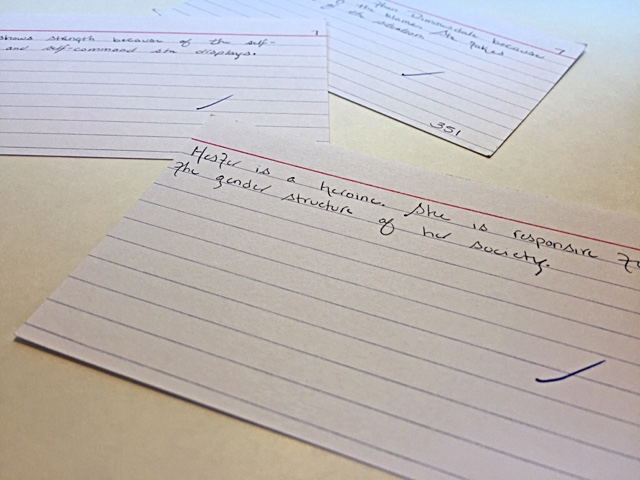 shows strength because of the self-
and self-command she displays.
than Dimmesdale because
the blame she takes
of the situation
7
351
Hester is a heroine. She is responsive to
the gender structure of her society.